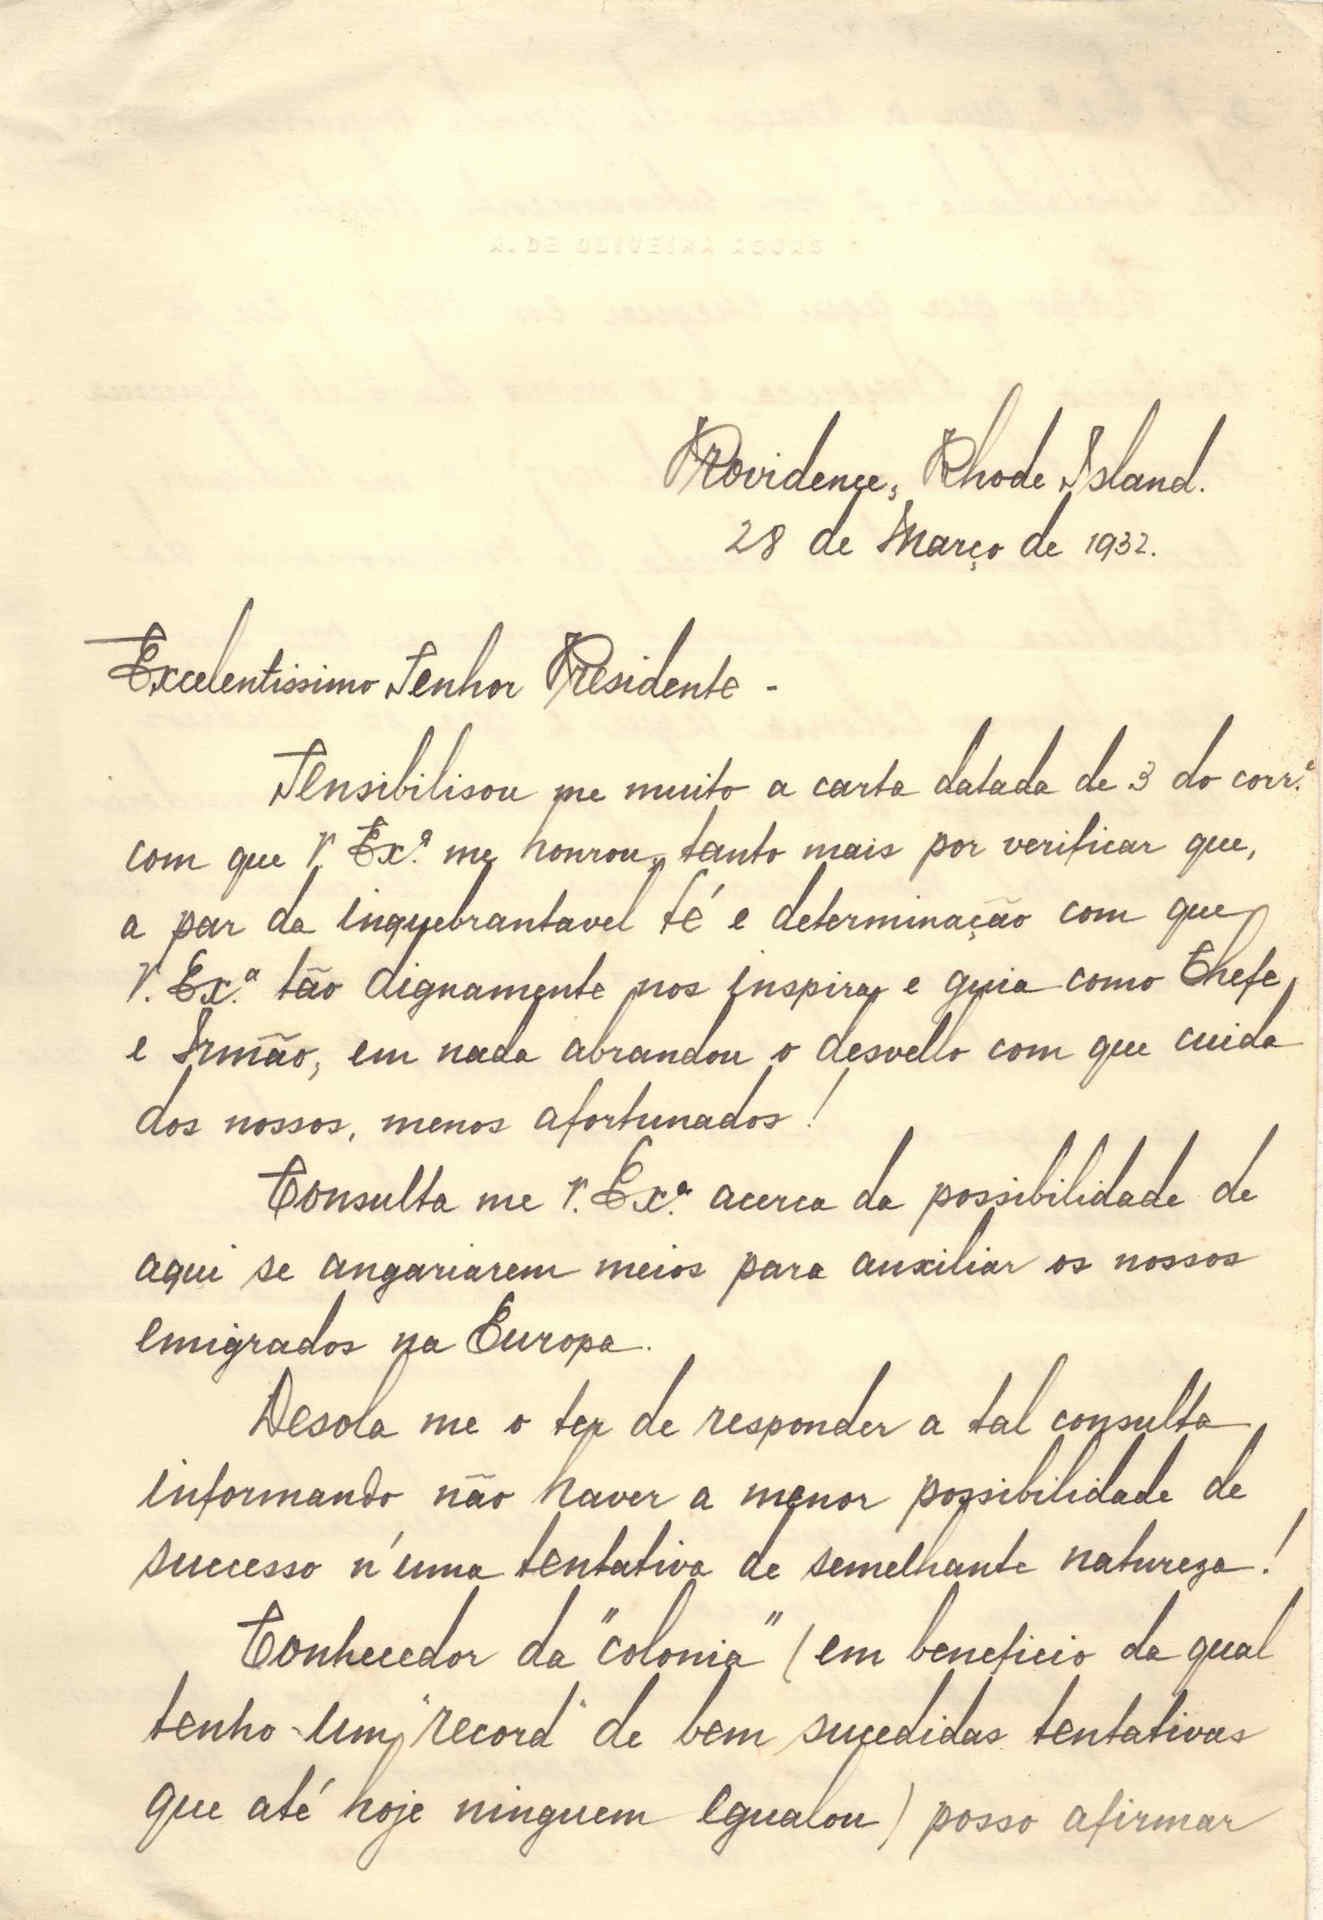 Providence, Rhode Island.
28 de Março de 1932.
Excelentissimo Senhor Presidente -
Sensibilisou me muito a carta datada de 3 do corr.e
com que V. Ex.ª me honrou, tanto mais por verificar que,
a par da inquebrantavel fé e determinação com que
V. Ex.ª tão dignamente nos inspira e guia como Chefe
e Irmão, em nada abrandou o desvello com que cuida
dos nossos, menos afortunados!
Consulta me V. Ex.ª acerca da possibilidade de
aqui se angariarem meios para auxiliar os nossos
emigrados na Europa.
Desola me o ter de responder a tal consulta
informando não haver a menor possibilidade de
successo n'uma tentativa de semelhante natureza!
Conhecedor da "colonia" (em beneficio da qual
tenho um "record" de bem sucedidas tentativas
que até hoje ninguem egualou) posso afirmar